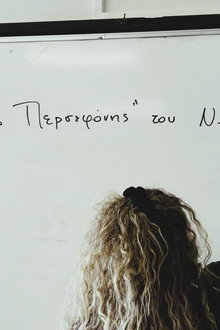 Περσεφόνης" του Ν.